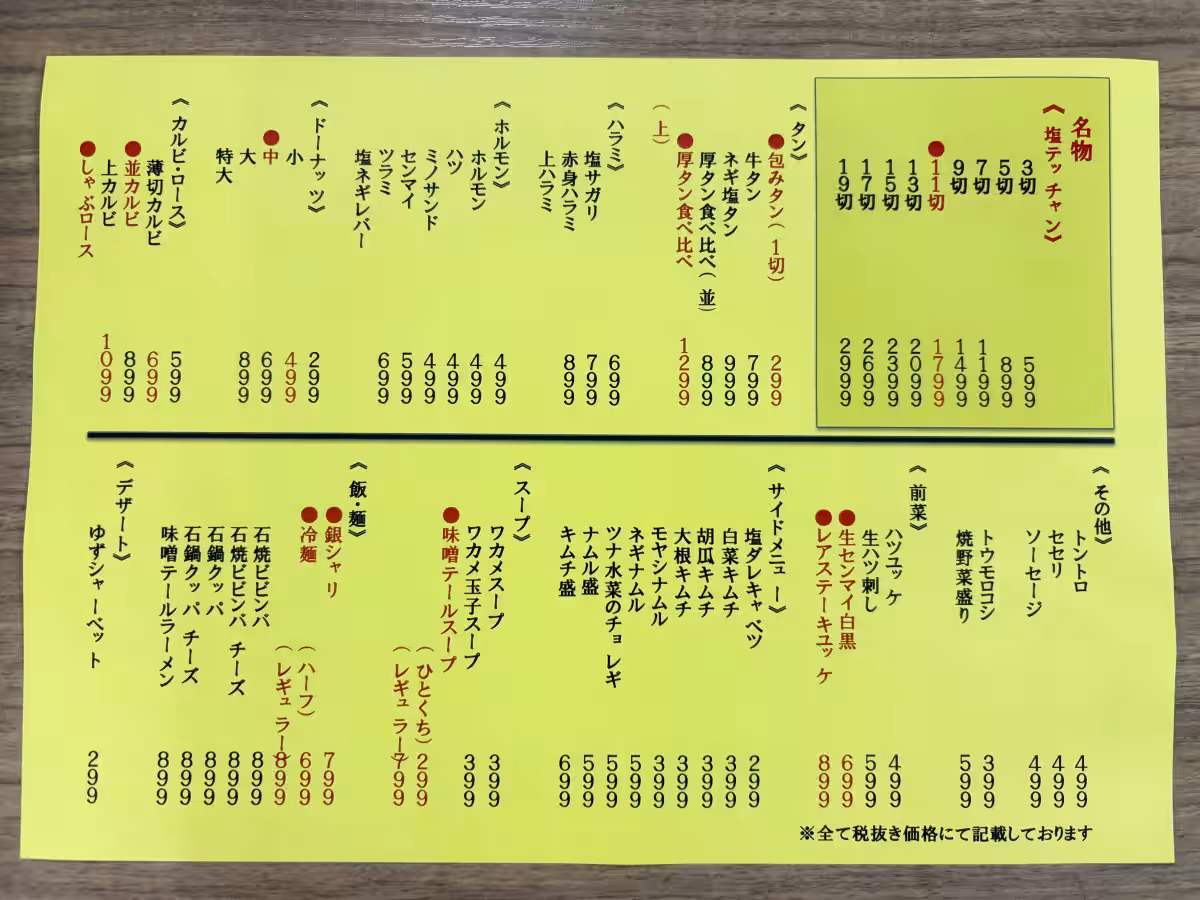 名物
《塩テッチャン》
3切 599
5切 899
7切 1199
9切 1499
●11切 1799
13切 2099
15切 2399
17切 2699
19切 2999
《タン》
●包みタン(1切) 299
牛タン 799
ネギ塩タン 999
厚タン食べ比べ(並) 899
●厚タン食べ比べ 1299
(上)
《ハラミ》
塩サガリ 699
赤身ハラミ 799
上ハラミ 899
《ホルモン》
ホルモン 499
ハツ 499
ミノサンド 499
センマイ 499
ツラミ 599
塩ネギレバー 699
《ドーナッツ》
小 299
●中 499
大 699
特大 899
《カルビ・ロース》
薄切カルビ 599
●並カルビ 699
上カルビ 899
●しゃぶロース 1099
《その他》
トントロ 499
セセリ 499
ソーセージ 499
トウモロコシ 399
焼野菜盛り 599
《前菜》
ハツユッケ 499
生ハツ刺し 599
●生センマイ白黒 699
●レアステーキユッケ 899
《サイドメニュー》
塩ダレキャベツ 299
白菜キムチ 399
胡瓜キムチ 399
大根キムチ 399
モヤシナムル 399
ネギナムル 599
ツナ水菜のチョレギ 599
ナムル盛 599
キムチ盛 699
《スープ》
ワカメスープ 399
ワカメ玉子スープ 399
●味噌テールスープ
(ひとくち) 299
(レギュラー) 799
《飯・麺》
●銀シャリ 799
●冷麺
(ハーフ) 699
(レギュラー) 899
石焼ビビンバ 899
石焼ビビンバ チーズ 899
石鍋クッパ 899
石鍋クッパ チーズ 899
味噌テールラーメン 899
《デザート》
ゆずシャーベット 299
※全て税抜き価格にて記載しております